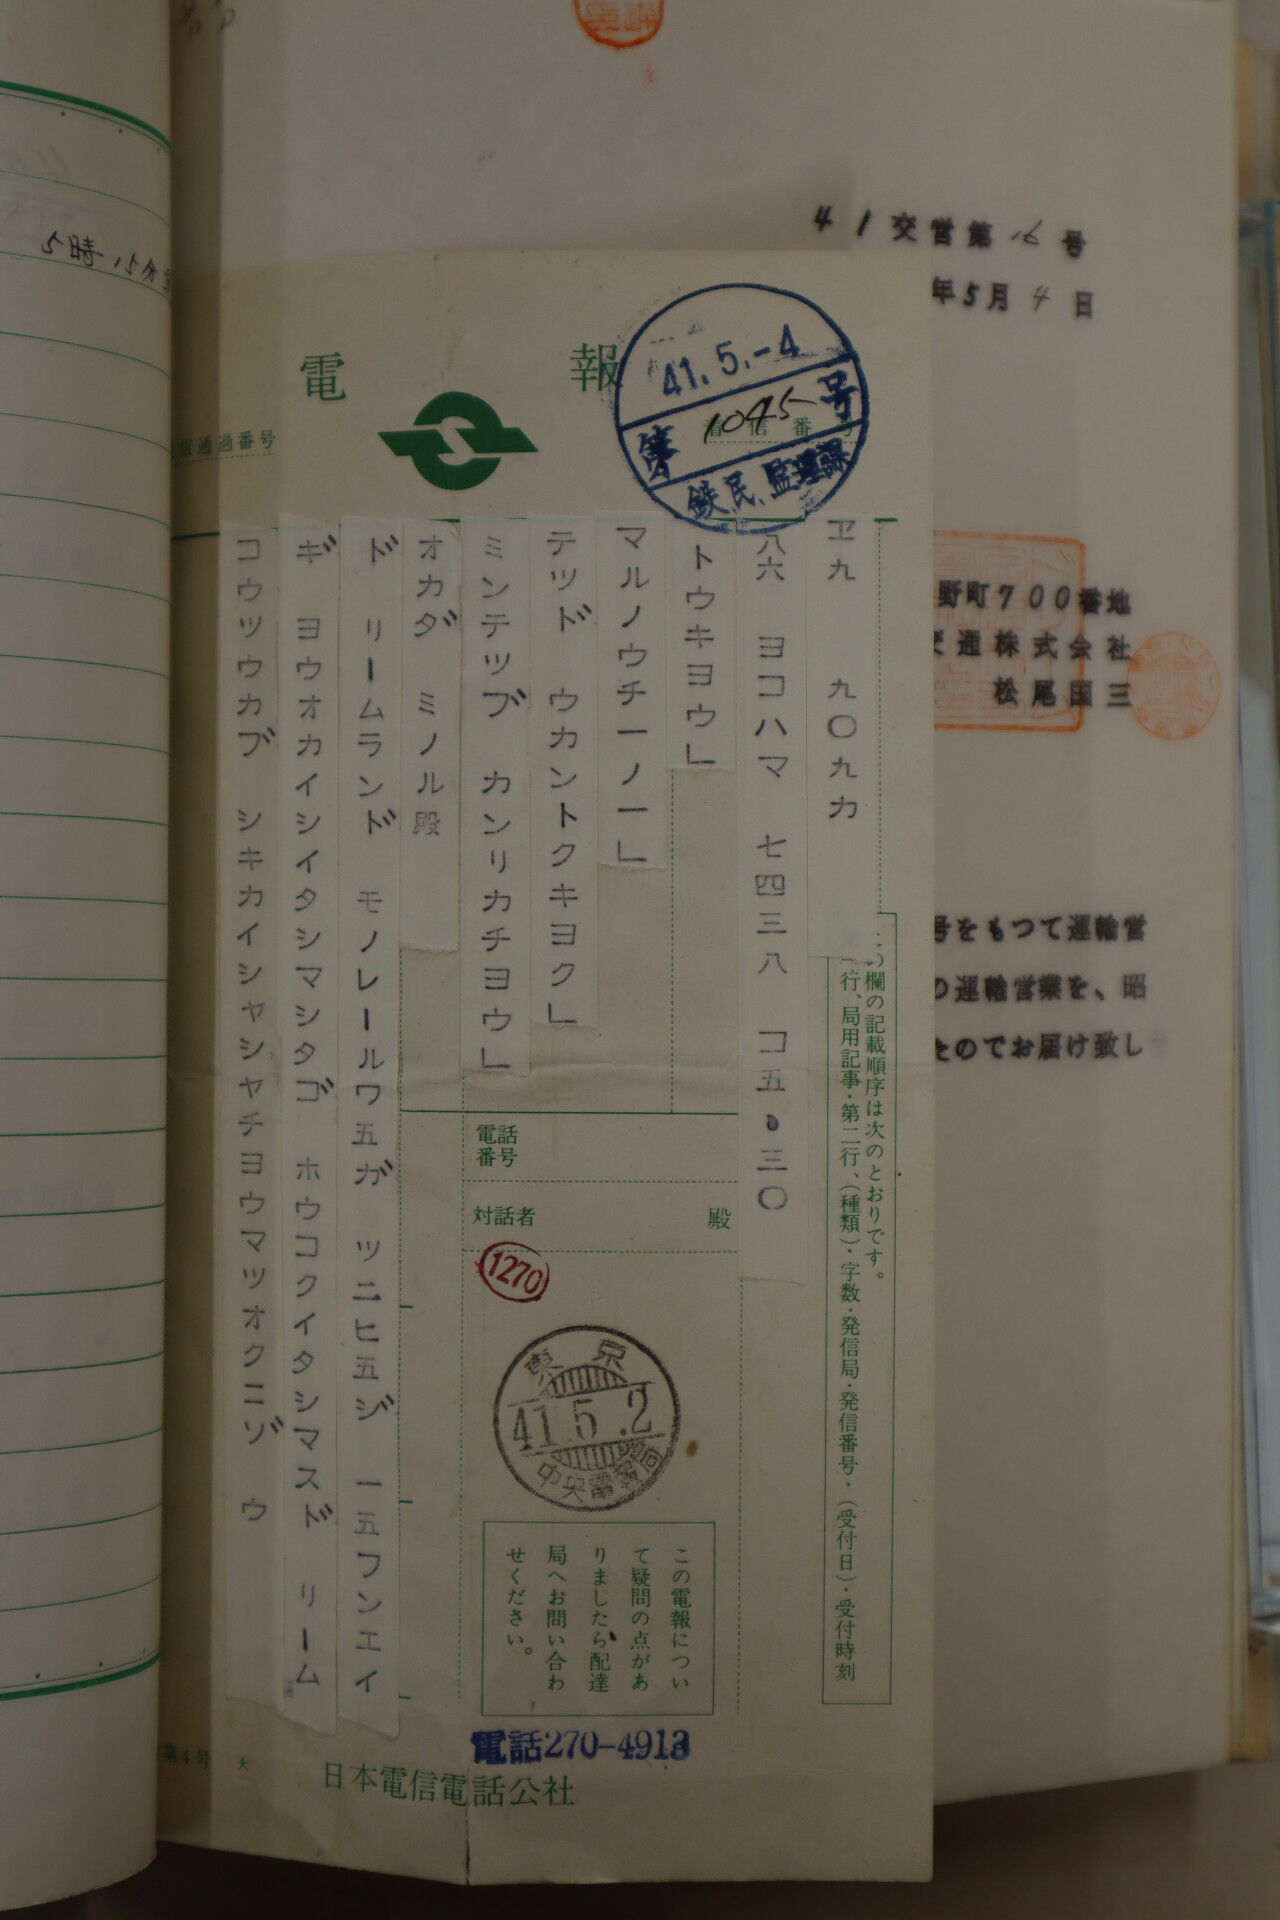 5時15分
41交営第16号
年5月4日
野町700番地
交通株式会社
松尾国三
号をもつて運輸営
の運輸営業を、昭
たのでお届け致し
電報
信通過番号
着信番号
41.5.-4
第1045号
鉄民、監理課
ヱ九 九〇九カ
八六 ヨコハマ 七四三八 コ五・三〇
トウキヨウ」
マルノウチ一ノ一」
テツド ウカントクキヨク」
ミンテツブ カンリカチヨウ」
オカダ ミノル殿
ド リームランド モノレールワ五ガ ツニヒ五ジ 一五フンエイ
ギ ヨウオカイシイタシマシタゴ ホウコクイタシマスド リーム
コウツウカブ シキカイシヤシヤチヨウマツオクニゾ ウ
この欄の記載順序は次のとおりです。
第一行、局用記事・第二行、(種類)・字数・発信局・発信番号・(受付日)・受付時刻
電話
番号
対話者 殿
1270
東京
41.5.2
中央電報局
この電報につい
て疑問の点があ
りましたら配達
局へお問い合わ
せください。
電話270-4913
第4号 大
日本電信電話公社